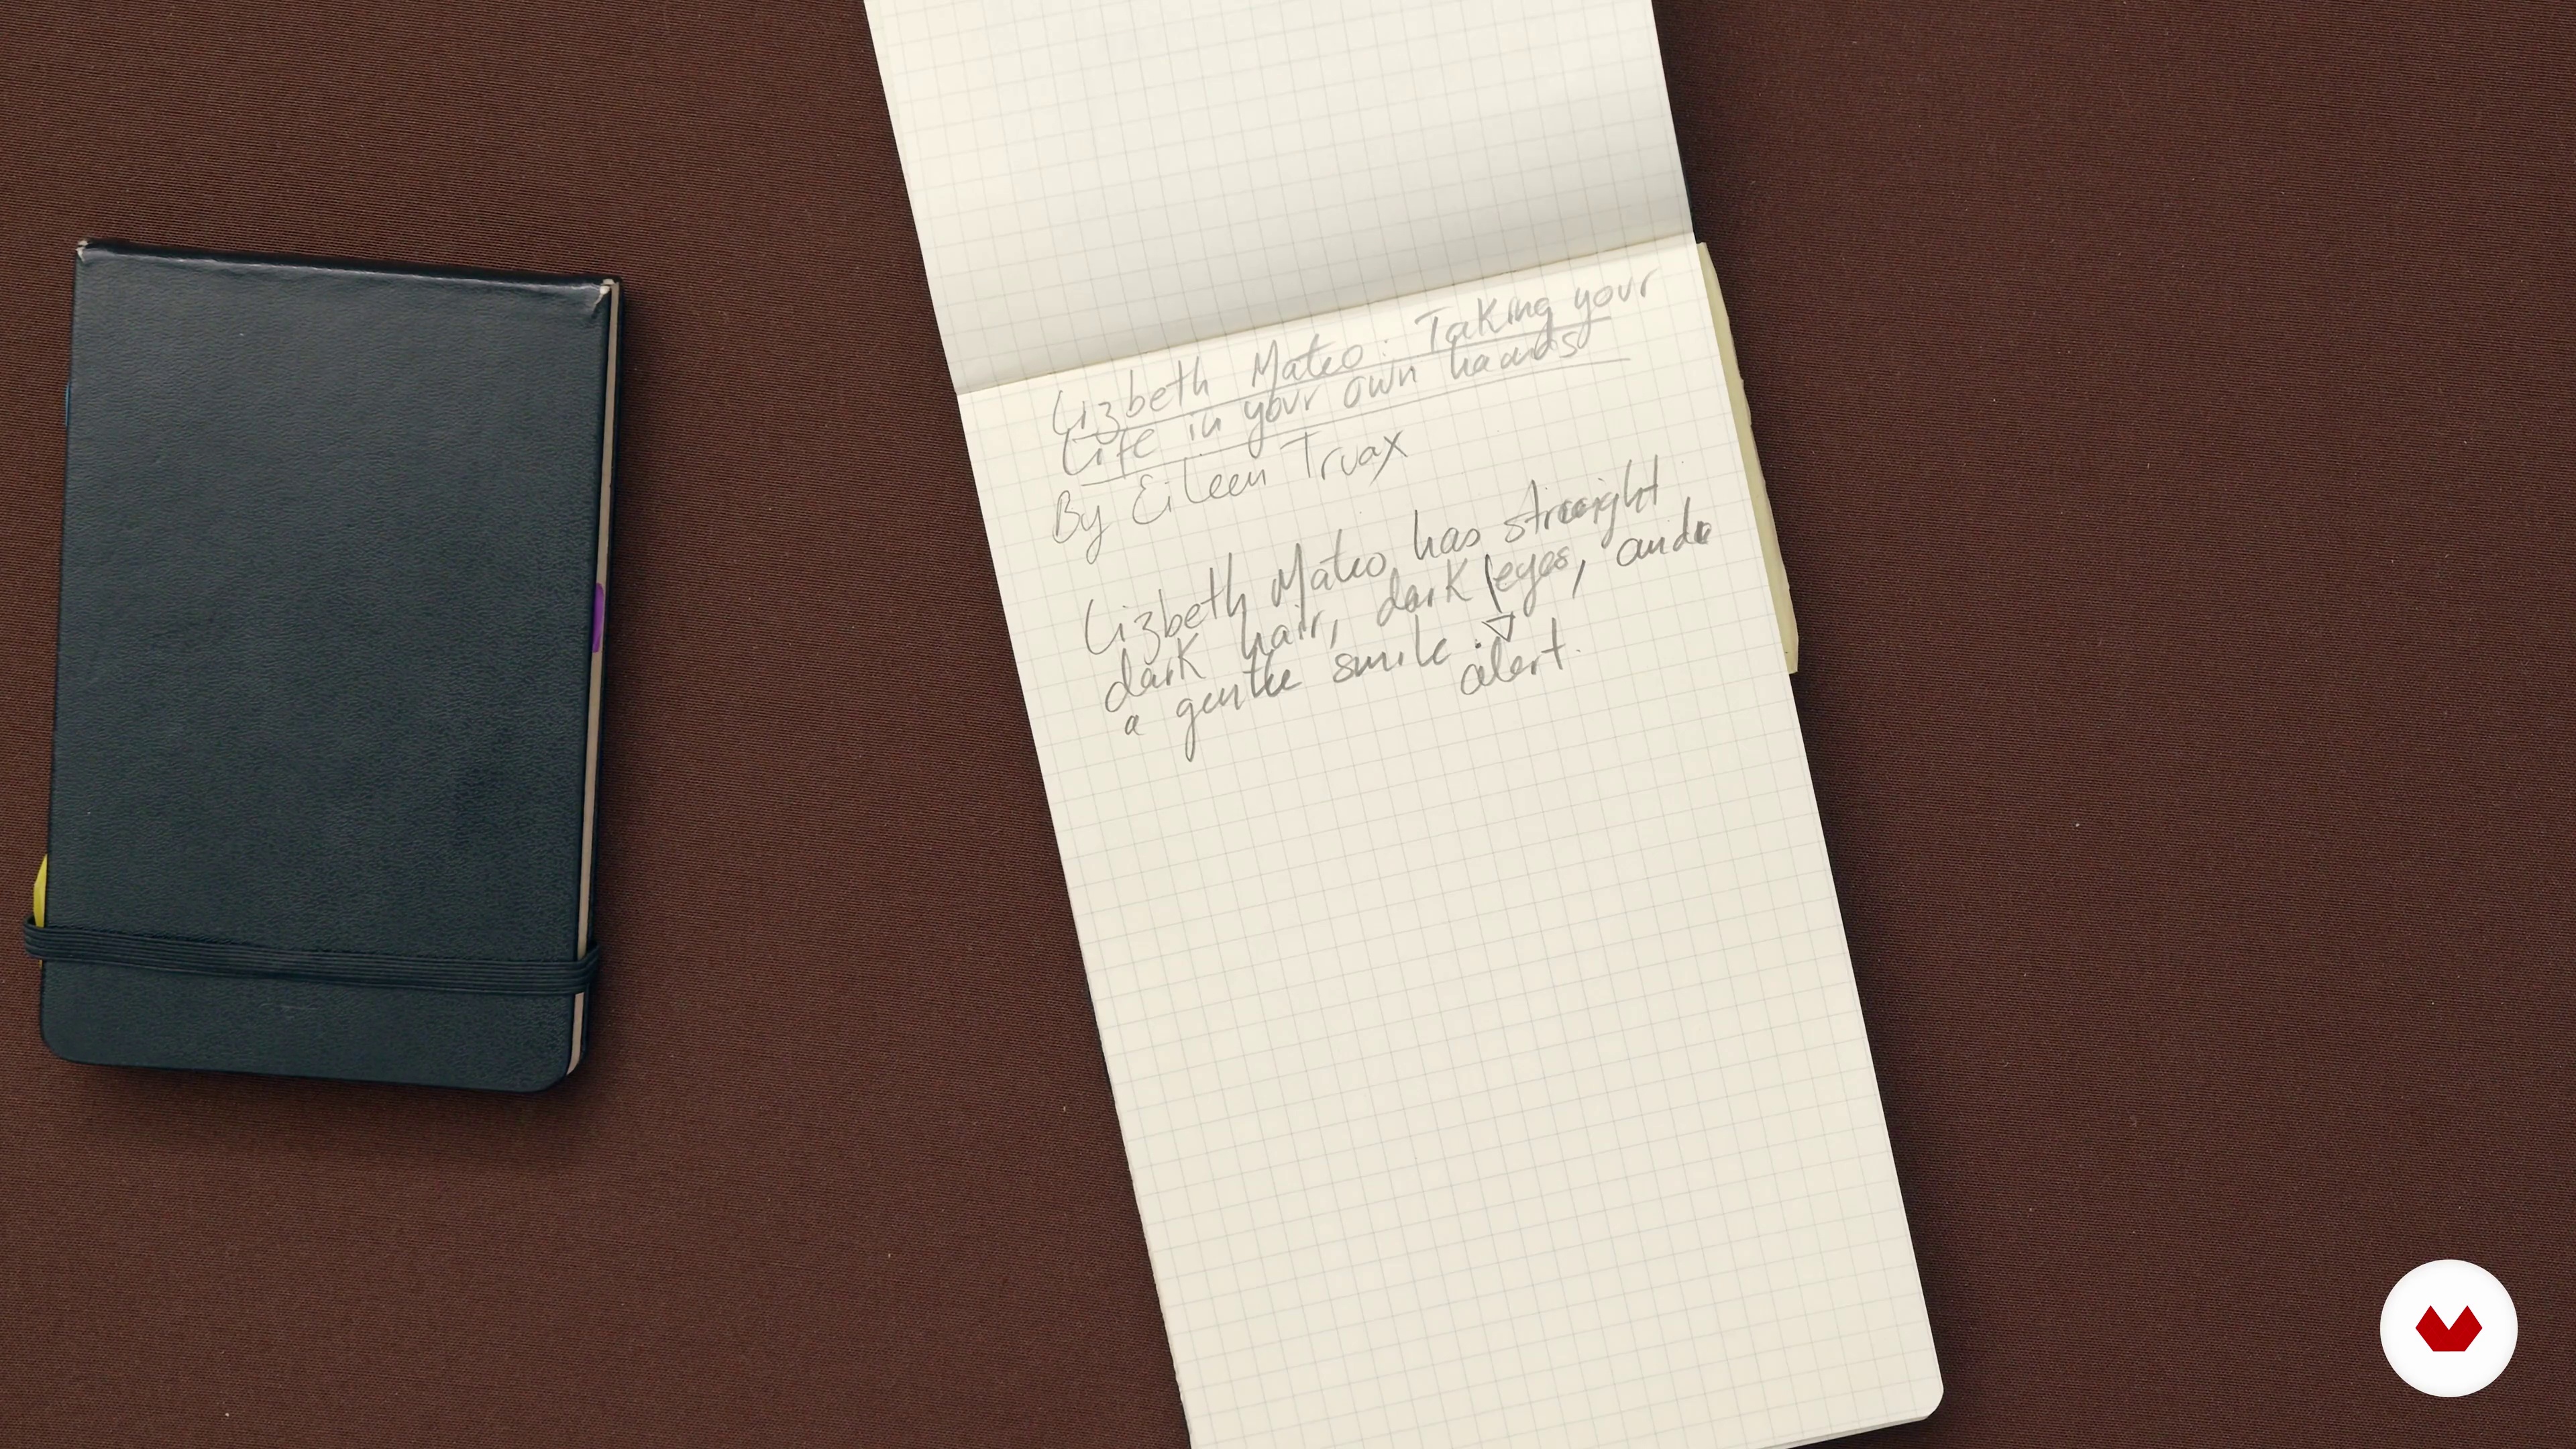 Lizbeth Mateo: Taking your
Life in your own haands
By Eileen Truax
Lizbeth Mateo has straight,
dark hair, dark eyes, and
a gentle smile.
alert.